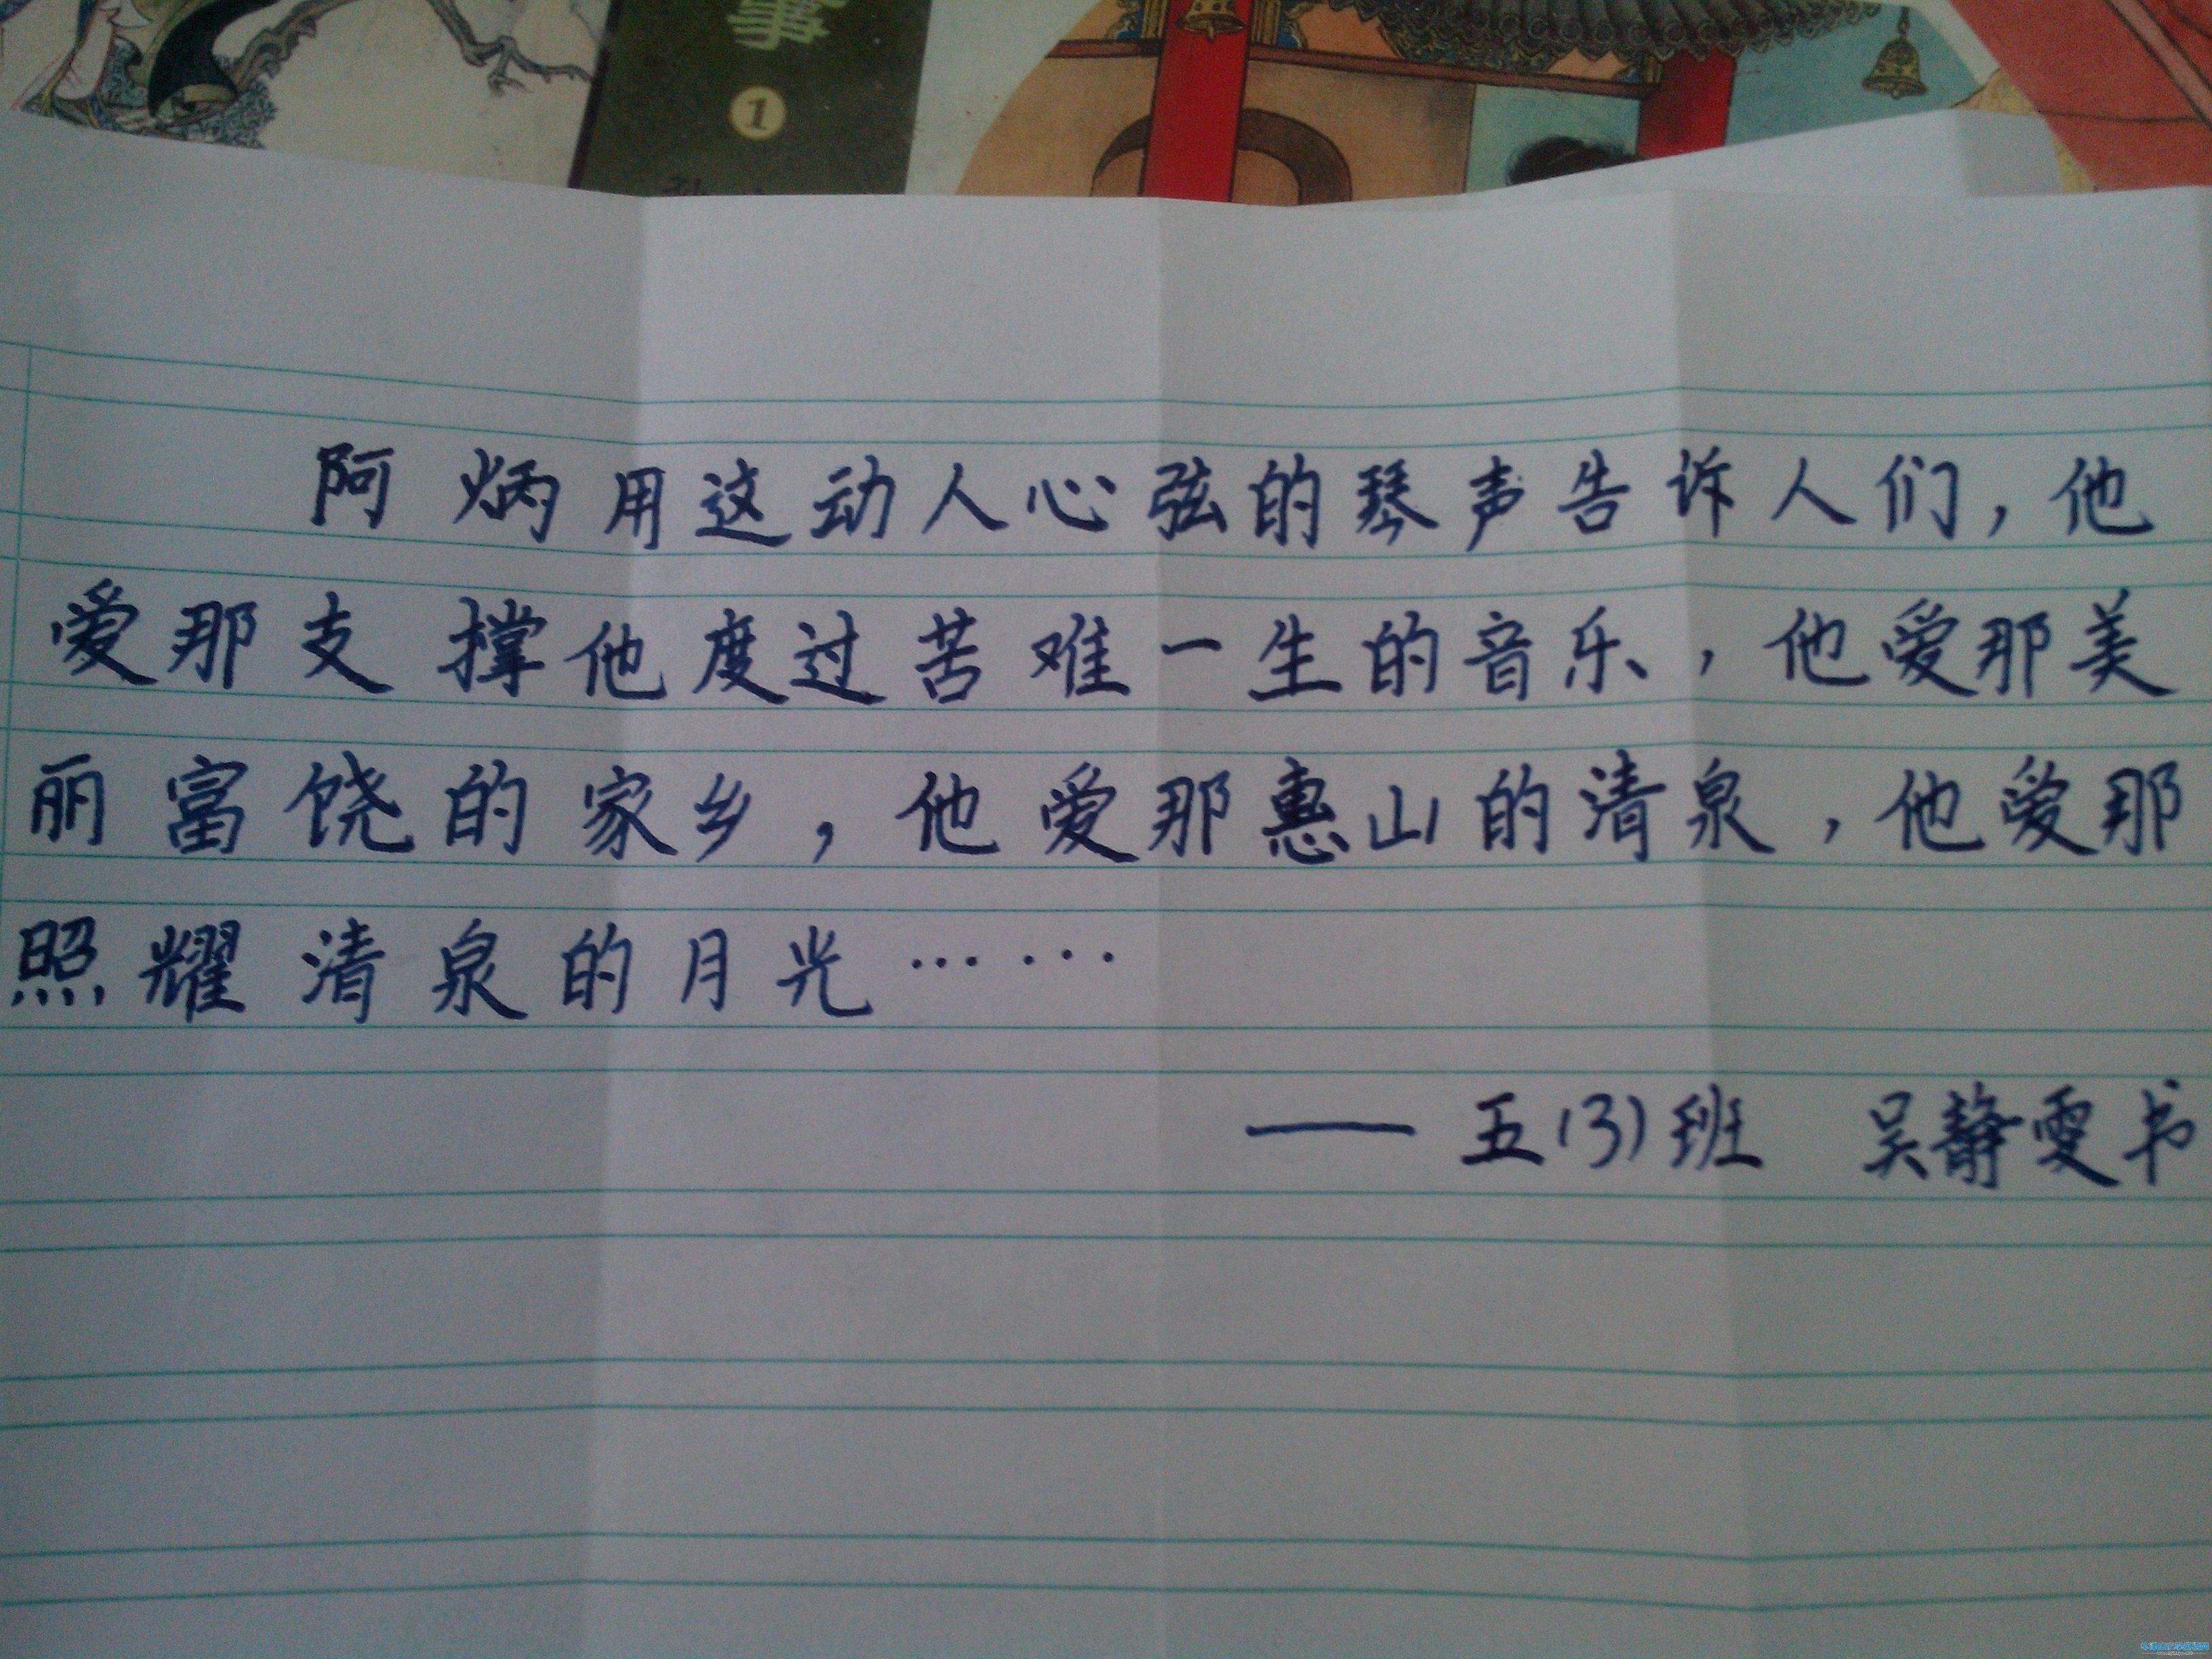 事
1
阿炳用这动人心弦的琴声告诉人们，他
爱那支撑他度过苦难一生的音乐，他爱那美
丽富饶的家乡，他爱那惠山的清泉，他爱那
照耀清泉的月光……
——五(3)班 吴静雯书